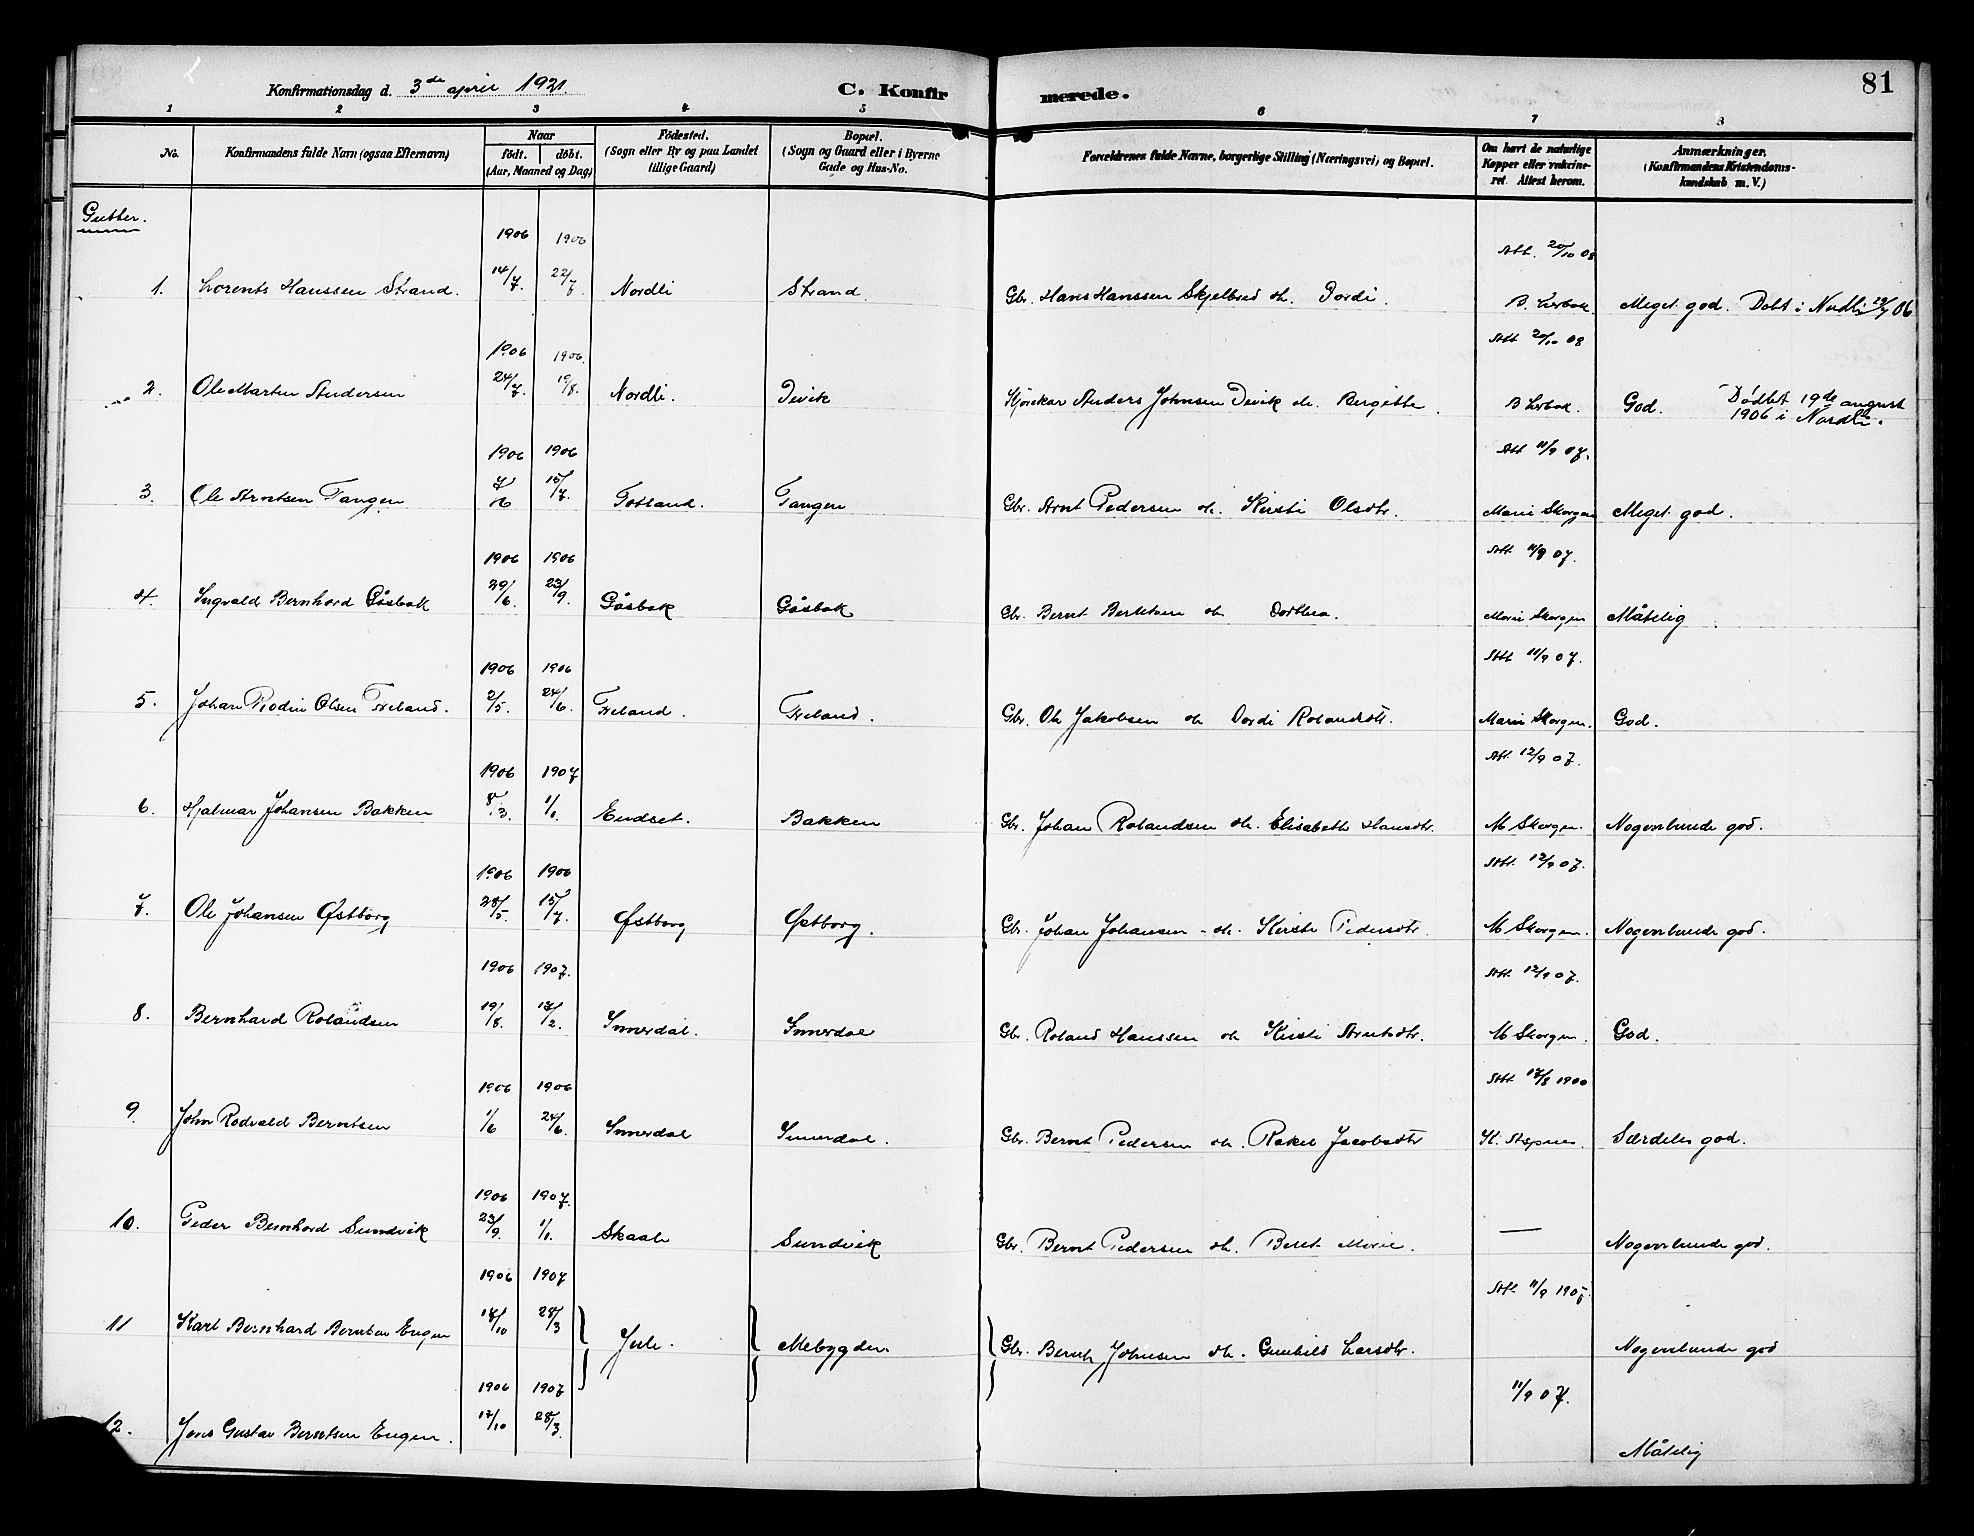 81
Konfirmationsdag d. 3de april 1921.
C. Konfirmerede.
1 2 3 4 5 6 7 8
No.
Konfirmandens fulde Navn (ogsaa Efternavn)
Naar
født. døbt.
(Aar, Maaned og Dag)
Fødested.
(Sogn eller By og paa Landet
tillige Gaard)
Bopæl.
(Sogn og Gaard eller i Byerne
Gade og Hus-No.
Forældrenes fulde Navne, borgerlige Stilling (Næringsvei) og Bopæl.
Om havt de naturlige
Kopper eller vakcine-
ret. Attest herom.
Anmærkninger.
(Konfirmandens Kristendoms-
kundskab m. V.)
Gutter.
1906 1906 Att. 20/10 08
1. Lorents Hanssen Strand. 14/7. 22/7 Nordli Strand Gbr. Hans Hanssen Skjelbred oh. Dordi. Meget god. Døbt i Nordli 22/7 06
1906 1906. Att 20/10 08
2. Ole Martin Andersen 24/7. 19/8. Nordli. Devik Anders Johnsen Devik oh. Bergitte. God. Dødbt 19de august
1906 i Nordli.
1906 1906 Att 11/9 07.
3. Ole Arntsen Tangen 15/7 Totland. Tangen Gbr. Arnt Pedersen oh. Kirsti Olsdtr. Marie Skorgen Meget god.
1906 1906 Att. 11/9 07.
4. Ingvald Bernhard Gåsbak 29/6. 23/9. Gåsbak Gåsbak Gbr. Bernt oh Dorthea. Marie Skorgen Måtelig
1906 1906 Att 11/9 07.
5. Johan Olsen Freland. 2/5. 24/6. Freland. Freland. Gbr. Ole Jakobsen oh Dordi Rolandsdtr. Marie Skorgen. God.
1906 1907 Att. 12/9 07.
6. Hjalmar Johansen Bakken 8/3. 1/1. Endset. Bakken Gbr. Johan Rolandsen oh. Elisabeth Hansdtr. M Skorgen. Nogenlunde god.
1906 1906 Att. 12/9 07.
7. Ole Johansen Østborg 28/5. 15/7. Østborg Østborg. Gbr. Johan Johansen oh. Kirsti Pedersdtr. M Skorgen. Nogenlunde god.
1906 1907. Att. 12/9 07.
8. Bernhard Rolandsen 19/8. 17/2. Inderdal. Inderdal Gbr. Roland Hanssen oh Kirsti Arntsdtr. M Skorgen. God.
1906 1906
9. John Rodvald Berntsen 1/6 24/6. Inderdal Inderdal. Gbr. Bernt Pedersen oh. Rakel Jacobsdtr Særdeles god.
1906 1907.
10. Peder Bernhard Sundvik 23/9. 1/1. Sundvik Gbr. Bernt Pedersen oh. Beret Marie. — Nogenlunde god.
1906 1907
11 Karl Bernhard Berntsen Engen 17/10 28/3 Jule. Mebygden Gbr. Bernt Johnsen oh. Gunhild Larsdtr. Nogenlunde god
1906 1907 11/9 07.
12. Jens Gustav Berntsen Engen. 17/10 28/3. Måtelig